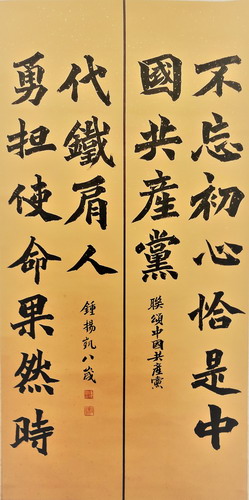 不忘初心恰是中
國共產黨
聯頌中國共產黨
勇担使命果然時
代鐵肩人
鍾揚凱八歲